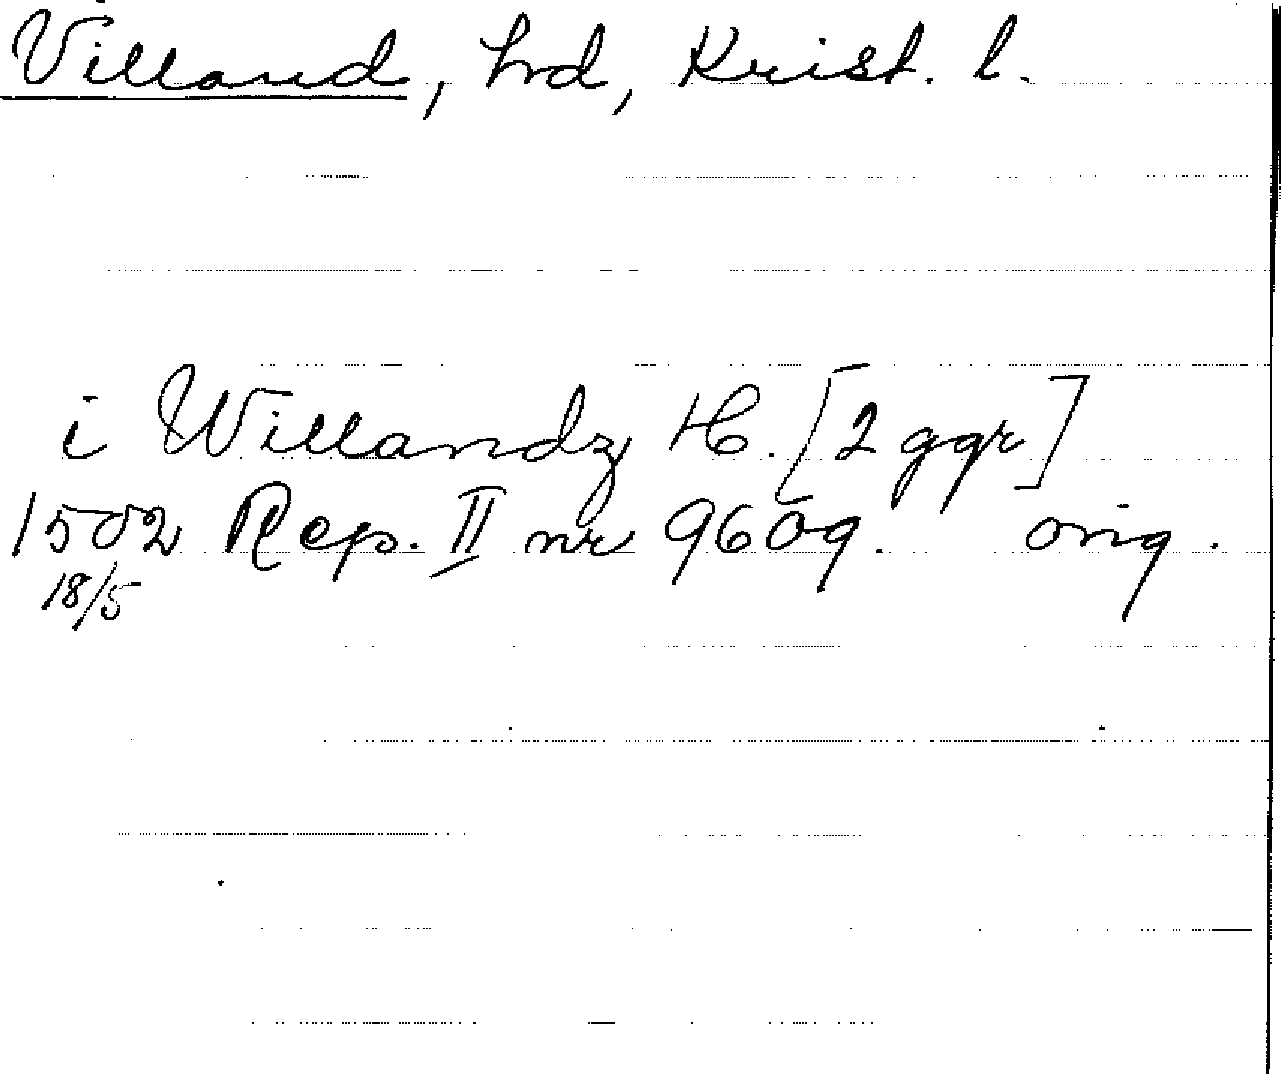 Villand, hrd, Krist. l.
i Willandz H. [2 ggr]
1502 Rep. II nr 9609. orig.
18/5